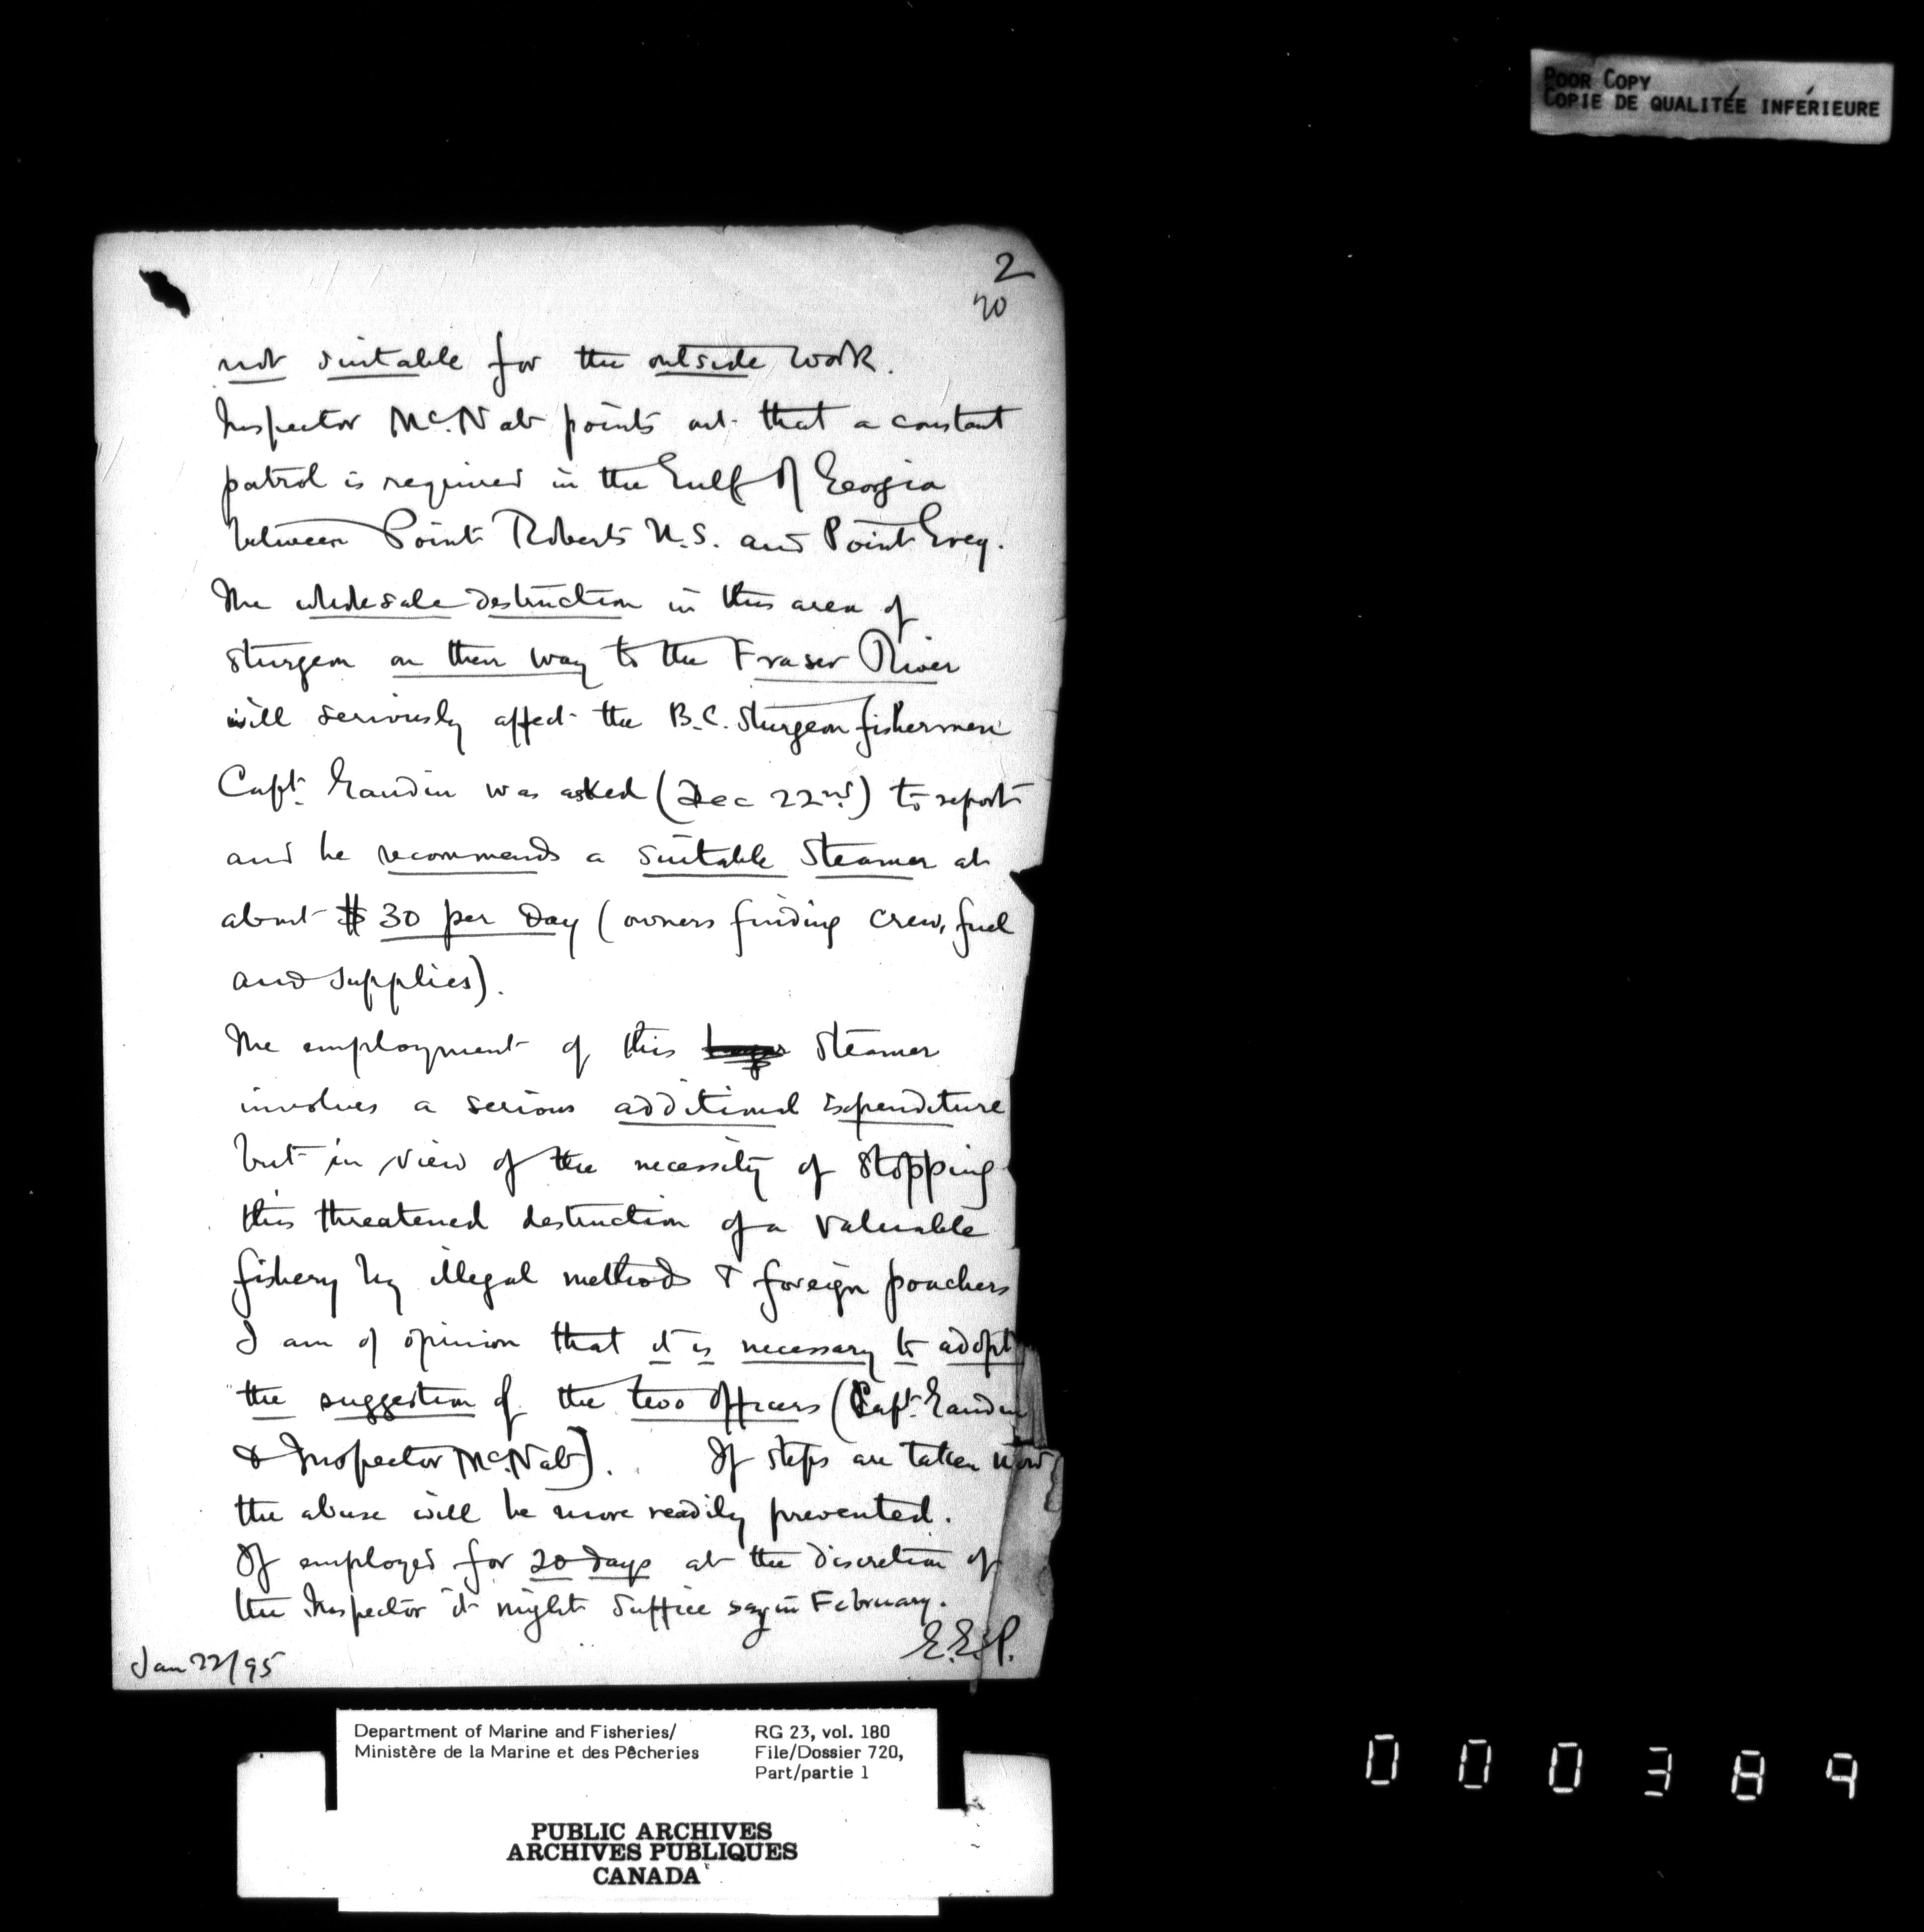 POOR COPY
COPIE DE QUALITÉE INFÉRIEURE
2
70
not suitable for the outside work.
Inspector McNab points out that a constant
patrol is required in the Gulf of Georgia
between Point Roberts U.S. and Point Grey.
The wholesale destruction in this area of
sturgeon on their way to the Fraser River
will seriously affect the B.C. sturgeon fishermen
Capt. Gaudin was asked (Dec 22nd) to report
and he recommends a suitable steamer at
about $30 per day (owners finding crew, fuel
and supplies).
The employment of this steamer
involves a serious additional expenditure
but in view of the necessity of stopping
this threatened destruction of a valuable
fishery by illegal methods & foreign poachers
I am of opinion that it is necessary to adopt
the suggestion of the two officers (Capt. Gaudin
& Inspector McNab). If steps are taken now
the abuse will be more readily prevented.
If employed for 20 days at the discretion of
the Inspector it might suffice say in February.
E.E.P.
Jan 22/95
Department of Marine and Fisheries/ RG 23, vol. 180
Ministère de la Marine et des Pêcheries File/Dossier 720,
Part/partie 1
PUBLIC ARCHIVES
ARCHIVES PUBLIQUES
CANADA
000389